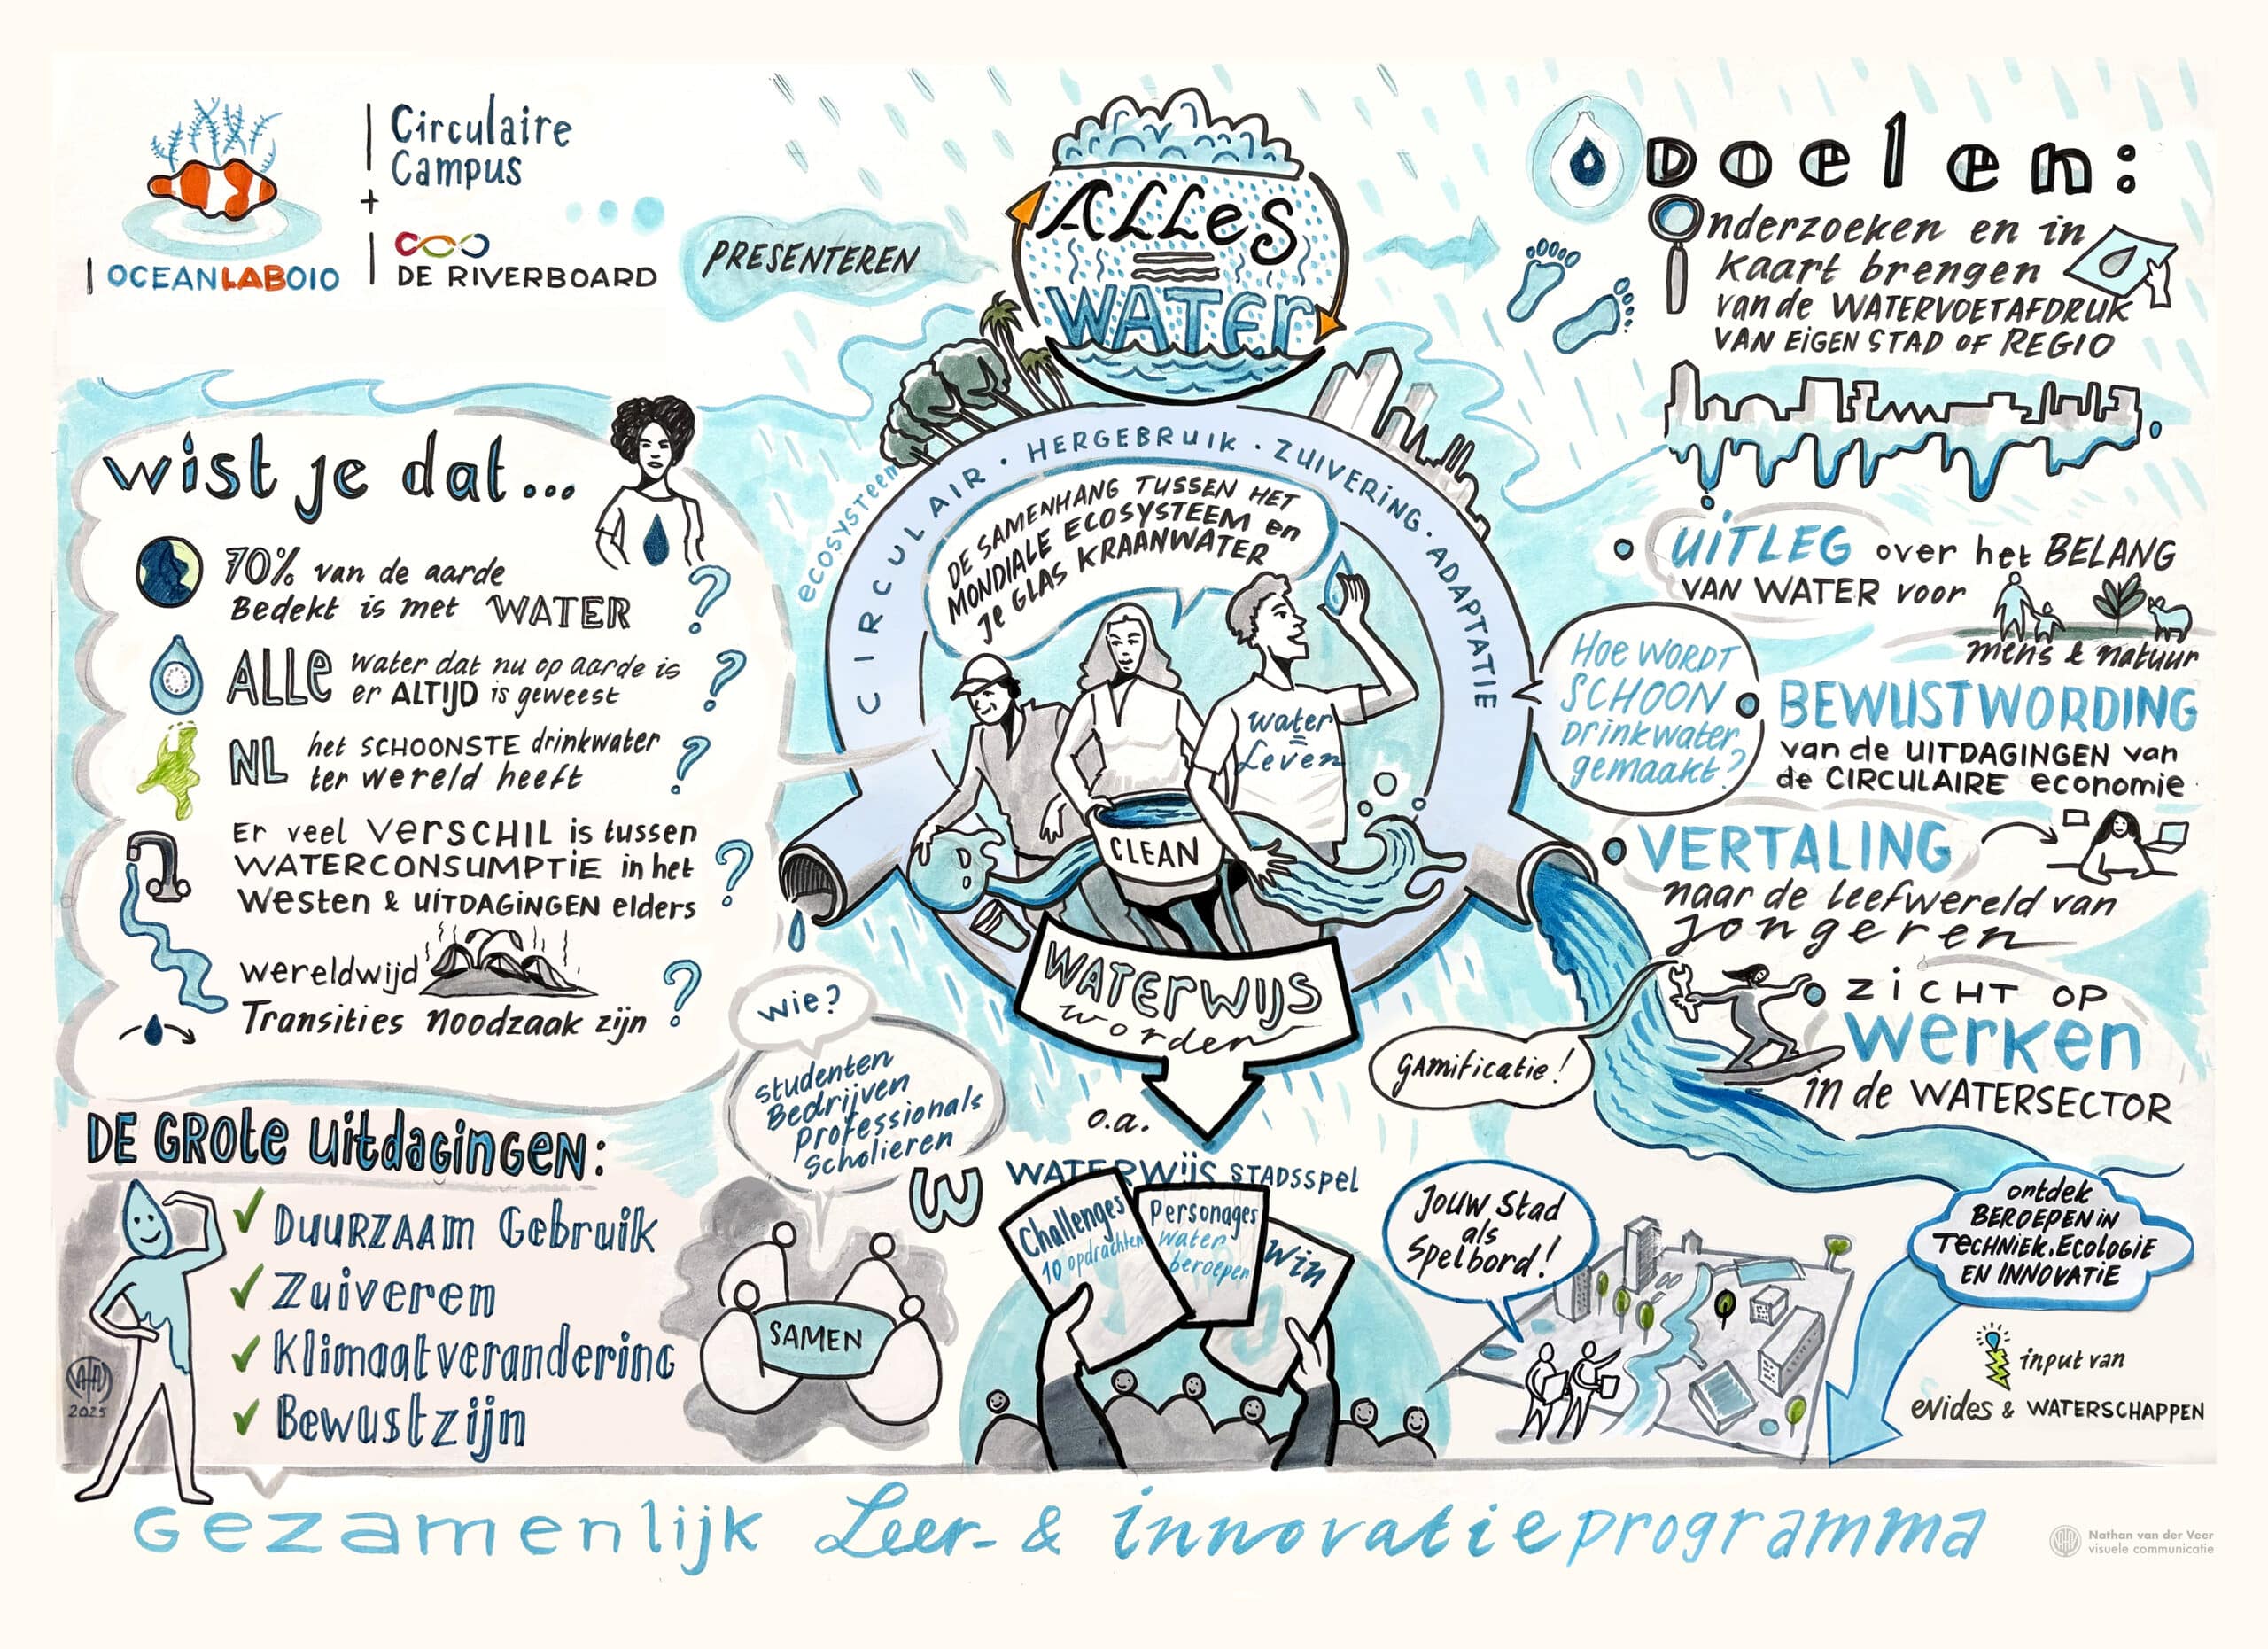 OCEANLAB010
Circulaire
Campus
+
DE RIVERBOARD
PRESENTEREN
ALLES
WATER
wist je dat...
70% van de aarde
Bedekt is met WATER ?
ALLE water dat nu op aarde is
er ALTIJD is geweest ?
NL het SCHOONSTE drinkwater
ter wereld heeft ?
Er veel VERSCHIL is tussen
WATERCONSUMPTIE in het
Westen & UITDAGINGEN elders ?
wereldwijd
Transities noodzaak zijn ?
DE GROTE UITDAGINGEN:
DUURZAAM Gebruik
Zuiveren
Klimaatverandering
Bewustzijn
2025
ecosysteem
CIRCULAIR · HERGEBRUIK · ZUIVERING · ADAPTATIE
DE SAMENHANG TUSSEN HET
MONDIALE ECOSYSTEEM en
Je GLAS KRAANWATER
water
=
Leven
CLEAN
WATERWIJS
worden
wie?
studenten
Bedrijven
professionals
Scholieren
SAMEN
o.a.
WATERWIJS STADSSPEL
Challenges
10 opdrachten
Personages
Water
beroepen
Win
GAMIFICATIE!
Jouw stad
als
Spelbord!
Doelen:
Onderzoeken en in
kaart brengen
van de WATERVOETAFDRUK
VAN EIGEN STAD OF REGIO
UITLEG over het BELANG
VAN WATER voor
mens & natuur
HOE WORDT
SCHOON
Drinkwater
gemaakt?
BEWUSTWORDING
van de UITDAGINGEN van
de CIRCULAIRE economie
VERTALING
naar de leefwereld van
Jongeren
ZICHT OP
werken
in de WATERSECTOR
ontdek
BEROEPEN IN
TECHNIEK, ECOLOGIE
EN INNOVATIE
input van
evides & WATERSCHAPPEN
Gezamenlijk Leer- & innovatieprogramma
Nathan van der Veer
visuele communicatie